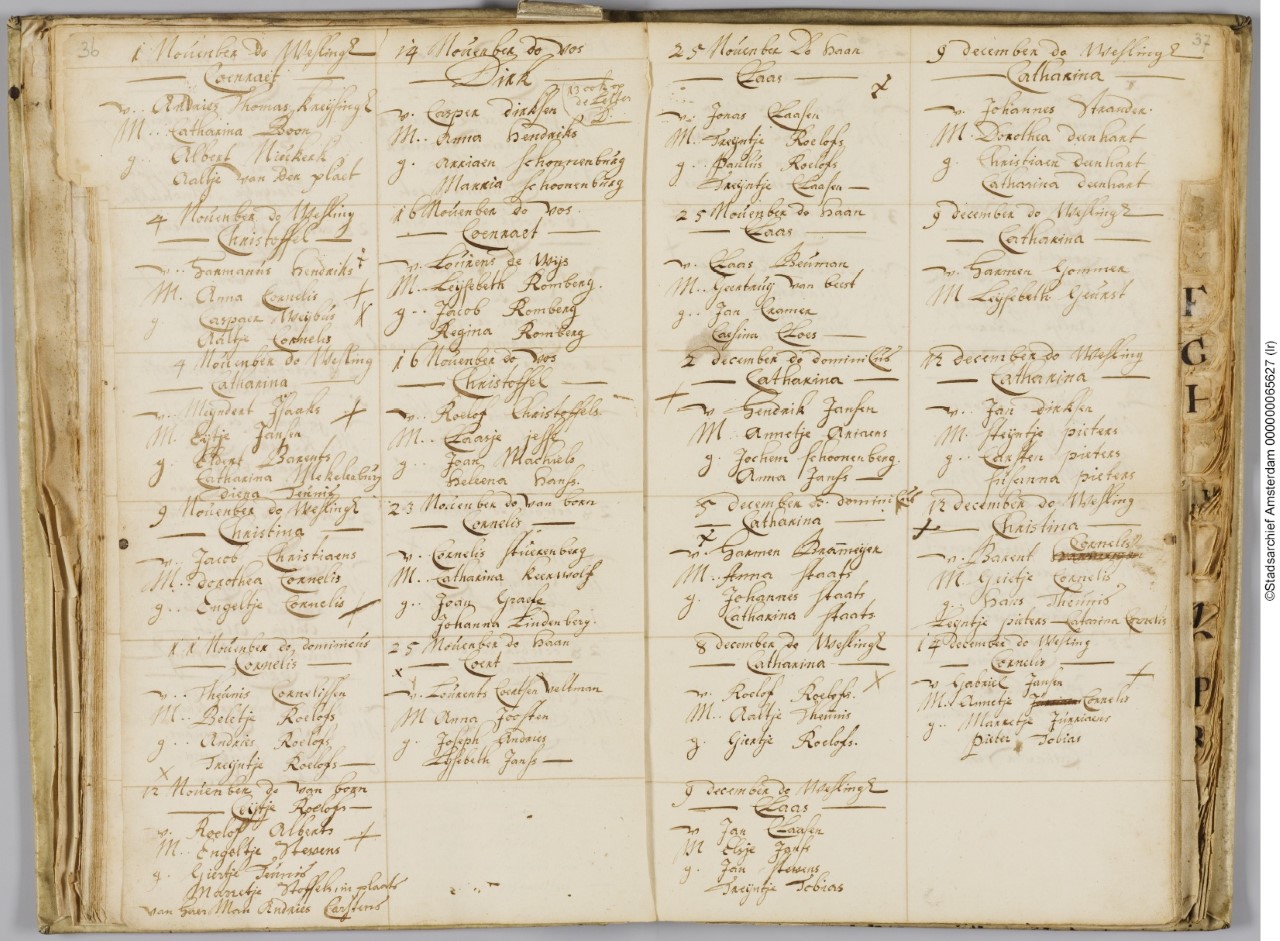 36
1 Nouenber do Wesling
Coenraet
v.. Andries Thomas Kreijsing
M.. Catharina Boon
g. Albert Nieckerk
Aaltje van der plaet
4 Nouenber do Wesling
Christoffel
v.. harmanus Hendriks
M. Anna Cornelis
g Casparr Weijbus
Aaltje Cornelis
4 Nouenber do Wesling
Catharina
v.. Meijndert Isaaks
M. Eijtje Jansen
g. Eldert Barents
Catharina Mekelenburg
diena Tennis
9 Nouenber do Wesling
Christina
v.. Jacob Christiaens
M.. dorothea Cornelis
g.. Engeltje Cornelis
11 Nouenber do dominicus
Cornelis
v.. Theunis Cornelissen
M.. Beletje Roelofs
g.. Andries Roelofs
Treijntje Roelofs
12 Nouenber do van born
Ceijtje Roelofs
v. Roelof Alberts
M.. Engeltje Stevens
g. Giertje Teunis
Marretje Stoffels in plaats
van haer Man Andries Carstens
14 Nouenber do vos
Dirk
v. Casper dirksen
M.. Anna Hendriks
g. Arriaen schoonenburg
Marria Schoonenburg
16 Nouenber do vos.
Coenraet
v. Lourens de Wijs
M.. Leijsebeth Romberg.
g.. Jacob Romberg
Regina Romberg
16 Nouenber do vos
Christoffel
v.. Roelof Christoffels.
M.. Claasje jesse
g.. Joan Machiels
Heleena Hanss.
23 Nouenber do van born
Cornelis
v.. Cornelis stuerenberg
M.. Catharina Keerwolf
g.. Joan Graefe
Johanna Lindenberg.
25 Nouenber do Haan
Coert
v.. Lourents Coertsen Veltman
M Anna Joosten
g. Joseph Andries
Lijsebeth Janss
37
25 Nouenber do Haan
Claas
v. Jonas Claasen
M.. Treijntje Roelofs
g. Paulus Roelofs
Treijntje Claasen
25 Nouenber do Haan
Claas
v. Claas Beuman
M.. Geertruij van beest
g.. Jan Cramer
Casina Cloes
2 december do dominicus
Catharina
v Hendrik Jansen
M. Annetje Ariaens
g. Jochem schoonenberg.
Anna Janss
5 december do. dominicus
Catharina
v.. Harmen Brameijer
M.. Anna Staats
g. Johannes staats
Catharina staats.
8 december do Wesling
Catharina
v. Roelof Roelofs.
M.. Aaltje Theunis
g. Giertje Roelofs.
9 december do Wesling
Claas
v. Jan Claasen
M Elsje Janss
g. Jan Stevens
Treijntje Tobias
9 december do Wesling
Catharina
v. Johannes Strander.
M. Dorothea deenhart
g. Christiaen deenhart
Catharina deenhart
9 december do Wesling
Catharina
v. Harmen Gommer
M Leijsebeth Geurst
12 december do Wesling
Catharina
v.. Jan dirksen
M. steijntje pieters
g.. Carsten pieters
susanna pieters
12 december do Wesling
Christina
v.. Barent Cornelis
M Geertje Cornelis
g.. Hans Theunis
Leijntje pieters Catarina Cornelis
14 December do Wesling
Cornelis
v. Gabriel Jansen
M.. Annetje Cornelis
g.. Marretje Jurriaens
pieter Tobias
F
G
H
P
R
©Stadsarchief Amsterdam 000000065627 (lr)